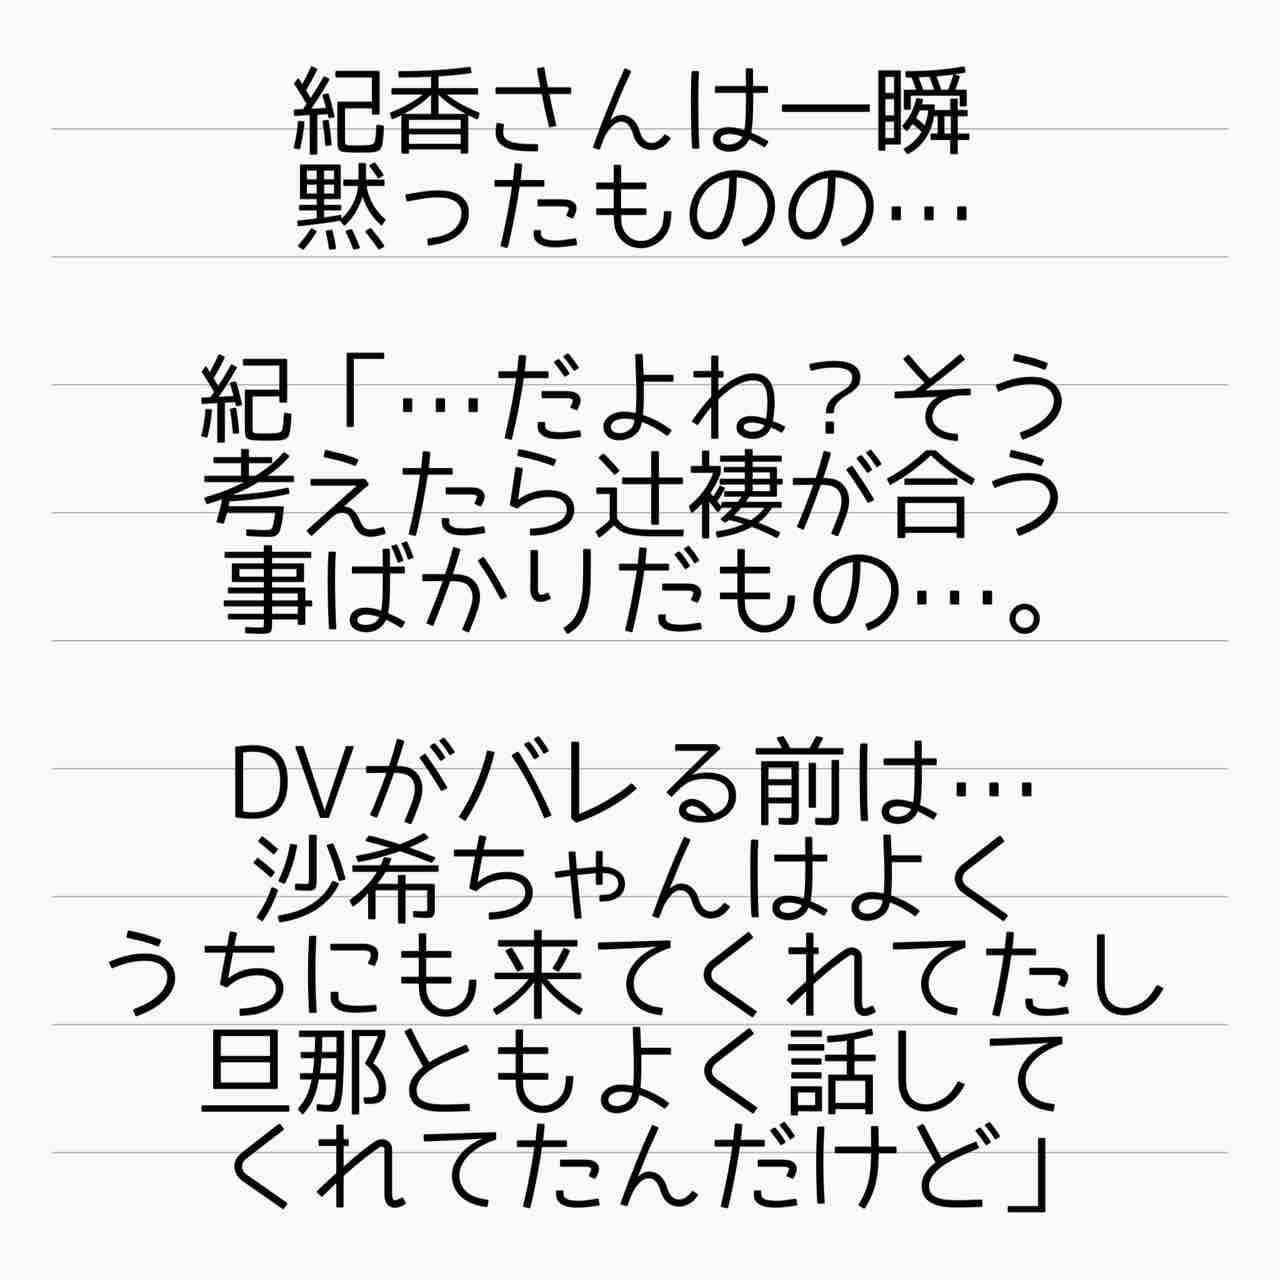 紀香さんは一瞬
黙ったものの…
紀「…だよね？そう
考えたら辻褄が合う
事ばかりだもの…。
DVがバレる前は…
沙希ちゃんはよく
うちにも来てくれてたし
旦那ともよく話して
くれてたんだけど」